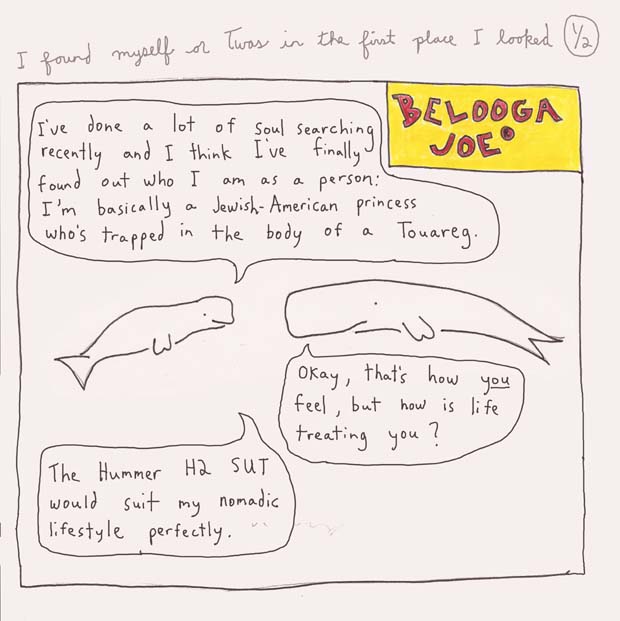 I found myself or Twas in the first place I looked 1/2
BELOOGA
JOE®
I've done a lot of soul searching
recently and I think I've finally
found out who I am as a person:
I'm basically a Jewish-American princess
who's trapped in the body of a Touareg.
Okay, that's how you
feel, but how is life
treating you?
The Hummer H2 SUT
would suit my nomadic
lifestyle perfectly.